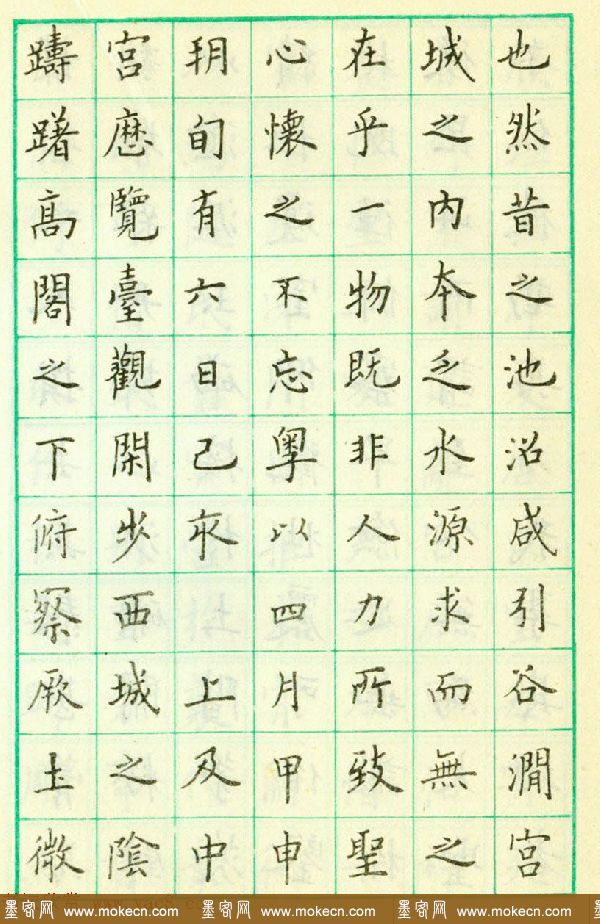 也然昔之池沼咸引谷澗宮
城之內本乏水源求而無之
在乎一物既非人力所致聖
心懷之不忘粤以四月甲申
朔旬有六日己亥上及中
宮歷覽臺觀閑步西城之陰
躊躇高閣之下俯察厥土微
墨客网 www.mokecn.com 墨客网 www.mokecn.com 墨客网 www.mokecn.com